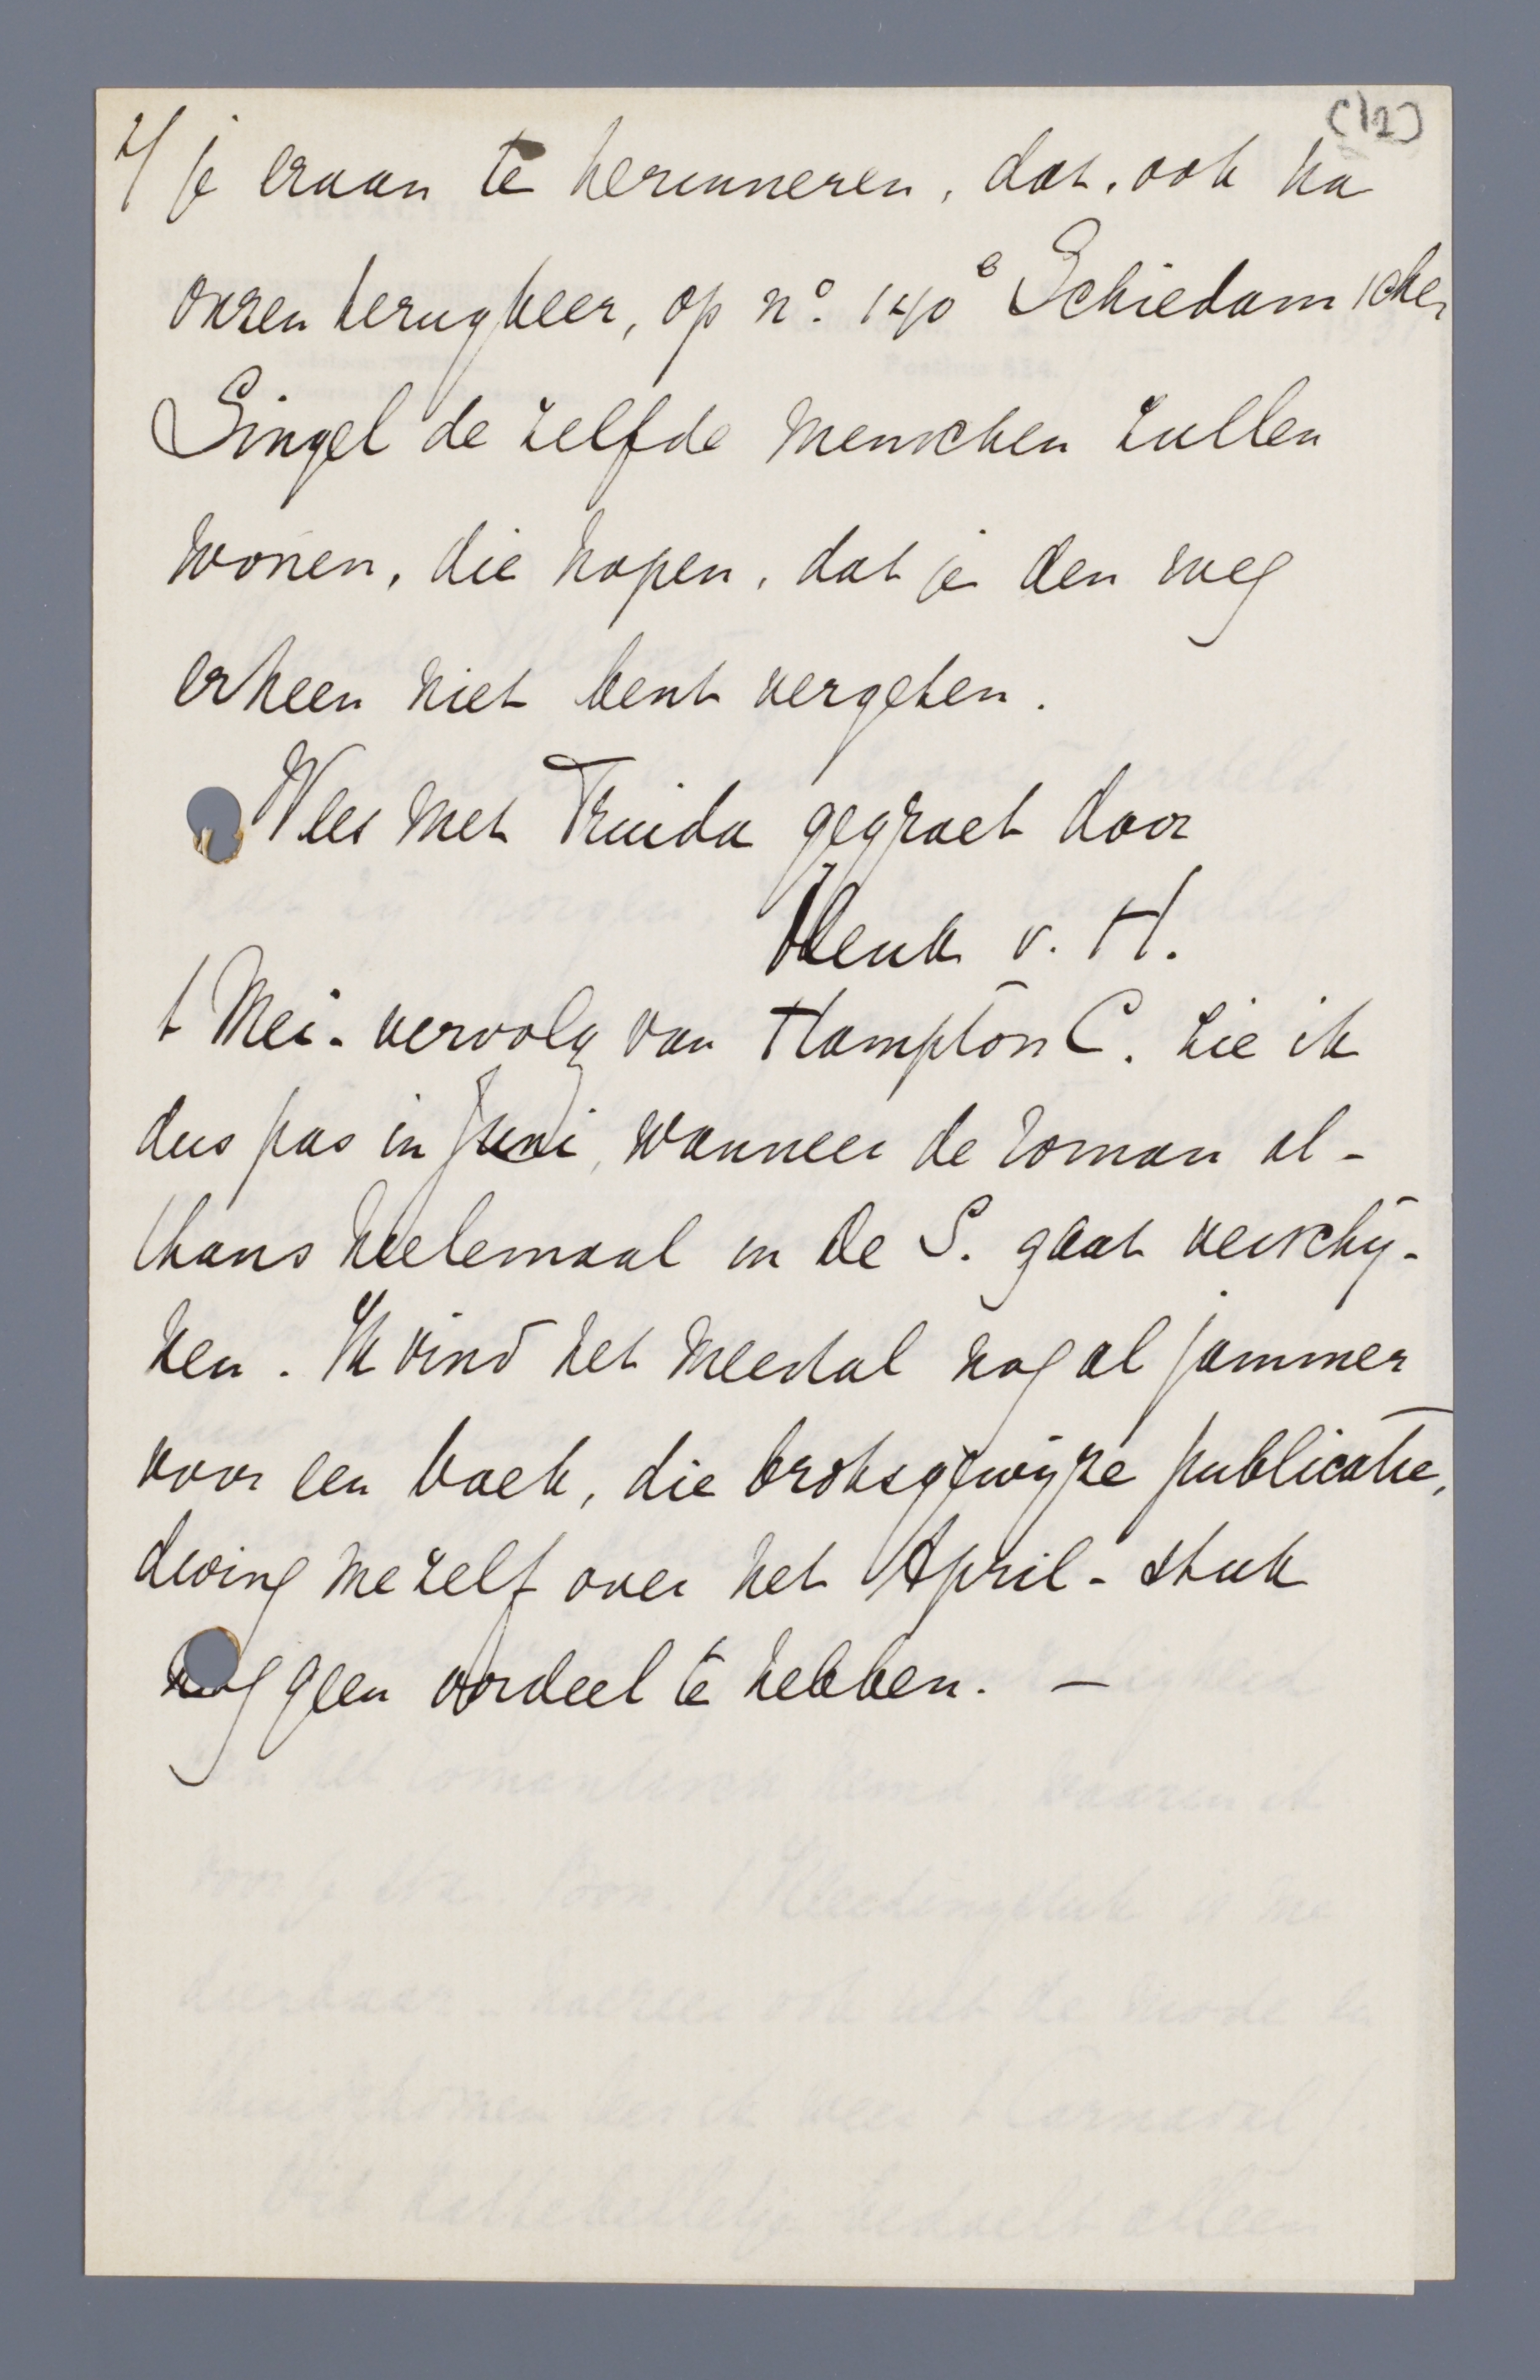 (12)
2/ je eraan te herinneren, dat, ook na
onzen terugkeer, op nº. 140ᵉ Schiedamsche
Singel de zelfde menschen zullen
wonen, die hopen, dat je den weg
erheen niet bent vergeten.
Wees met Truida gegroet door
Henk v. H.
t Mei-vervolg van Hampton C. zie ik
dus pas in Juni, wanneer de roman al-
thans heelemaal in De S. gaat verschij-
nen. Ik vind het meestal nog al jammer
voor een boek, die broksgewijze publicatie,
dwing mezelf over het April-stuk
nog geen oordeel te hebben. —